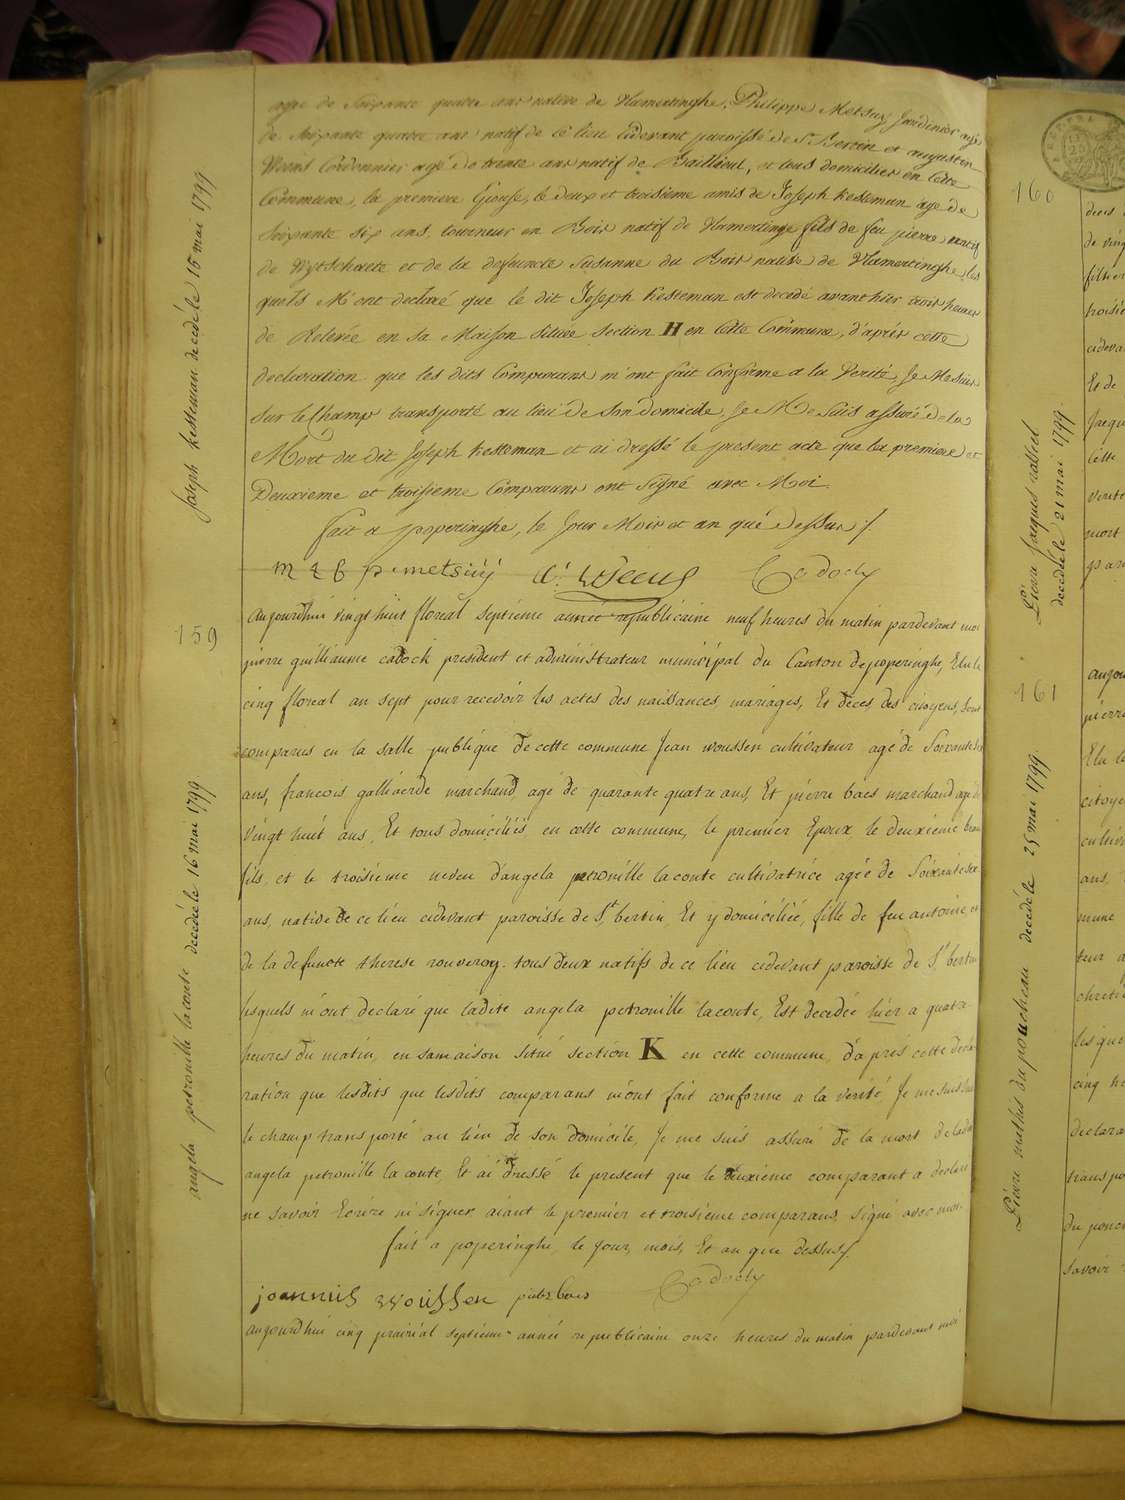 agée de Soixante quatre ans native de Vlamertinghe, Philippe Metsuÿ Jardinier agé
de Soixante quatre ans natif de ce lieu cidevant paroisse de St Bertin et augustin
Cordonnier agé de trente ans natif de Bailleul, et tous domiciliés en Cette
Commune, la premiere Epouse, le deux et troisieme amis de Joseph Kesteman agé de
Soixante six ans, tourneur en Bois natif de Vlamertinge fils de feu pierre natif
de Wytschaete et de la defuncte Susanne du Bois native de Vlamertinghe, les
quels M'ont declaré que le dit Joseph Kesteman est decedé avanthier trois heures
de Relevée en sa Maison Située Section H en Cette Commune, d'après cette
declaration que les dits Comparans m'ont fait Conforme a la Verité, Je Me Suis
Sur le Champ transporté au lieu de Son domicile, Je Me Suis assuré de la
Mort du dit Joseph Kesteman et ai dressé le present acte que la premiere et
Deuxieme et troisieme Comparans ont Signé avec Moi.
fait a poperinghe, le Jour Mois et an que dessus ./.
p. metsuÿ Cadock
Joseph Kesteman decedé le 15 mai 1799
159
aujourdhui vingt huit floreal septieme année republicaine neuf heures du matin pardevant moi
pierre guilliaume cadock president et administrateur municipal du Canton de poperinghe, Elu le
cinq floreal an sept pour recevoir les actes des naissances, mariages, Et deces des citoyens, sont
comparus en la salle publique de cette commune Jean woussen cultivateur agé de Soixante
ans, francois galliaerde marchand agé de quarante quatre ans, Et pierre baes marchand agé de
vingt huit ans, Et tous domiciliés en cette commune, le premier Epoux le deuxieme beau
fils, et le troisieme neveu d'angela petronille la conte cultivatrice agée de Soixante
ans, native de ce lieu cidevant paroisse de St bertin, Et y domiciliée, fille de feu antoine, et
de la defuncte therese rouveroy. tous deux natifs de ce lieu cidevant paroisse de St bertin
lesquels m'ont declaré que ladite angela petronille la conte, Est decedée hier a quatre
heures du matin, en sa maison situé section K en cette commune, d'apres cette decla-
ration que lesdits que lesdits comparans m'ont fait conforme a la verité, Je me suis sur
le champ transporté au lieu de son domicile, Je me suis assuré de la mort de ladite
angela petronille la conte, Et ai dressé le present que le deuxieme comparant a declaré
ne savoir Ecrire ni signer, aiant le premier et troisieme comparans, signé avec moi.
fait a poperinghe, le jour, mois, Et an que dessus ./.
joannus woussen pieter baes Cadock
angela petronille la conte decedée le 16 mai 1799
aujourdhui cinq prairial septieme année republicaine onze heures du matin pardevant moi
160
161
decedé le 21 mai 1799
decedé le 25 mai 1799